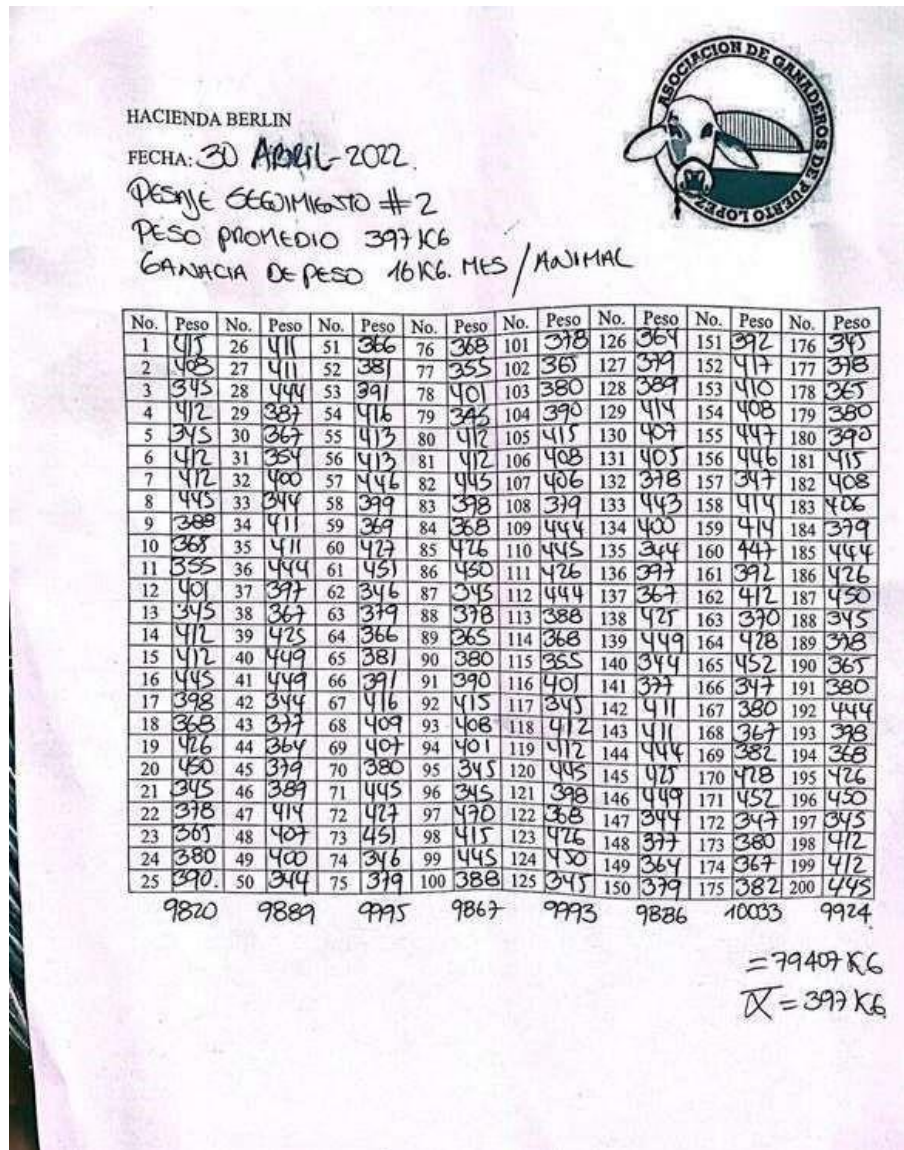 ASOCIACION DE GANADEROS DE PUERTO LOPEZ
HACIENDA BERLIN
FECHA: 30 ABRIL-2022.
PESAJE SEGUIMIENTO #2
PESO PROMEDIO 397 KG
GANACIA DE PESO 16 KG. MES / ANIMAL
No. Peso No. Peso No. Peso No. Peso No. Peso No. Peso No. Peso No. Peso
1 415 26 411 51 366 76 368 101 378 126 364 151 392 176 345
2 408 27 411 52 381 77 355 102 365 127 379 152 417 177 378
3 345 28 444 53 391 78 401 103 380 128 389 153 410 178 365
4 412 29 387 54 416 79 345 104 390 129 414 154 408 179 380
5 345 30 367 55 413 80 412 105 415 130 407 155 447 180 390
6 412 31 354 56 413 81 412 106 408 131 405 156 446 181 415
7 412 32 400 57 446 82 445 107 406 132 378 157 347 182 408
8 445 33 344 58 399 83 398 108 379 133 443 158 414 183 406
9 388 34 411 59 369 84 368 109 444 134 400 159 414 184 379
10 368 35 411 60 427 85 426 110 445 135 344 160 447 185 444
11 355 36 444 61 451 86 450 111 426 136 397 161 392 186 426
12 401 37 397 62 346 87 345 112 444 137 367 162 412 187 450
13 345 38 367 63 379 88 378 113 388 138 425 163 370 188 345
14 412 39 425 64 366 89 365 114 368 139 449 164 428 189 378
15 412 40 449 65 381 90 380 115 355 140 344 165 452 190 365
16 445 41 449 66 391 91 390 116 401 141 377 166 347 191 380
17 398 42 344 67 416 92 415 117 345 142 411 167 380 192 444
18 368 43 377 68 409 93 408 118 412 143 411 168 367 193 398
19 426 44 364 69 407 94 401 119 412 144 444 169 382 194 368
20 450 45 379 70 380 95 345 120 445 145 425 170 428 195 426
21 345 46 389 71 445 96 345 121 398 146 449 171 452 196 450
22 378 47 414 72 427 97 470 122 368 147 344 172 347 197 345
23 365 48 407 73 451 98 415 123 426 148 377 173 380 198 412
24 380 49 400 74 346 99 445 124 450 149 364 174 367 199 412
25 390. 50 344 75 379 100 388 125 345 150 379 175 382 200 445
9820 9889 9995 9867 9993 9886 10033 9924
= 79407 KG
X̄ = 397 KG